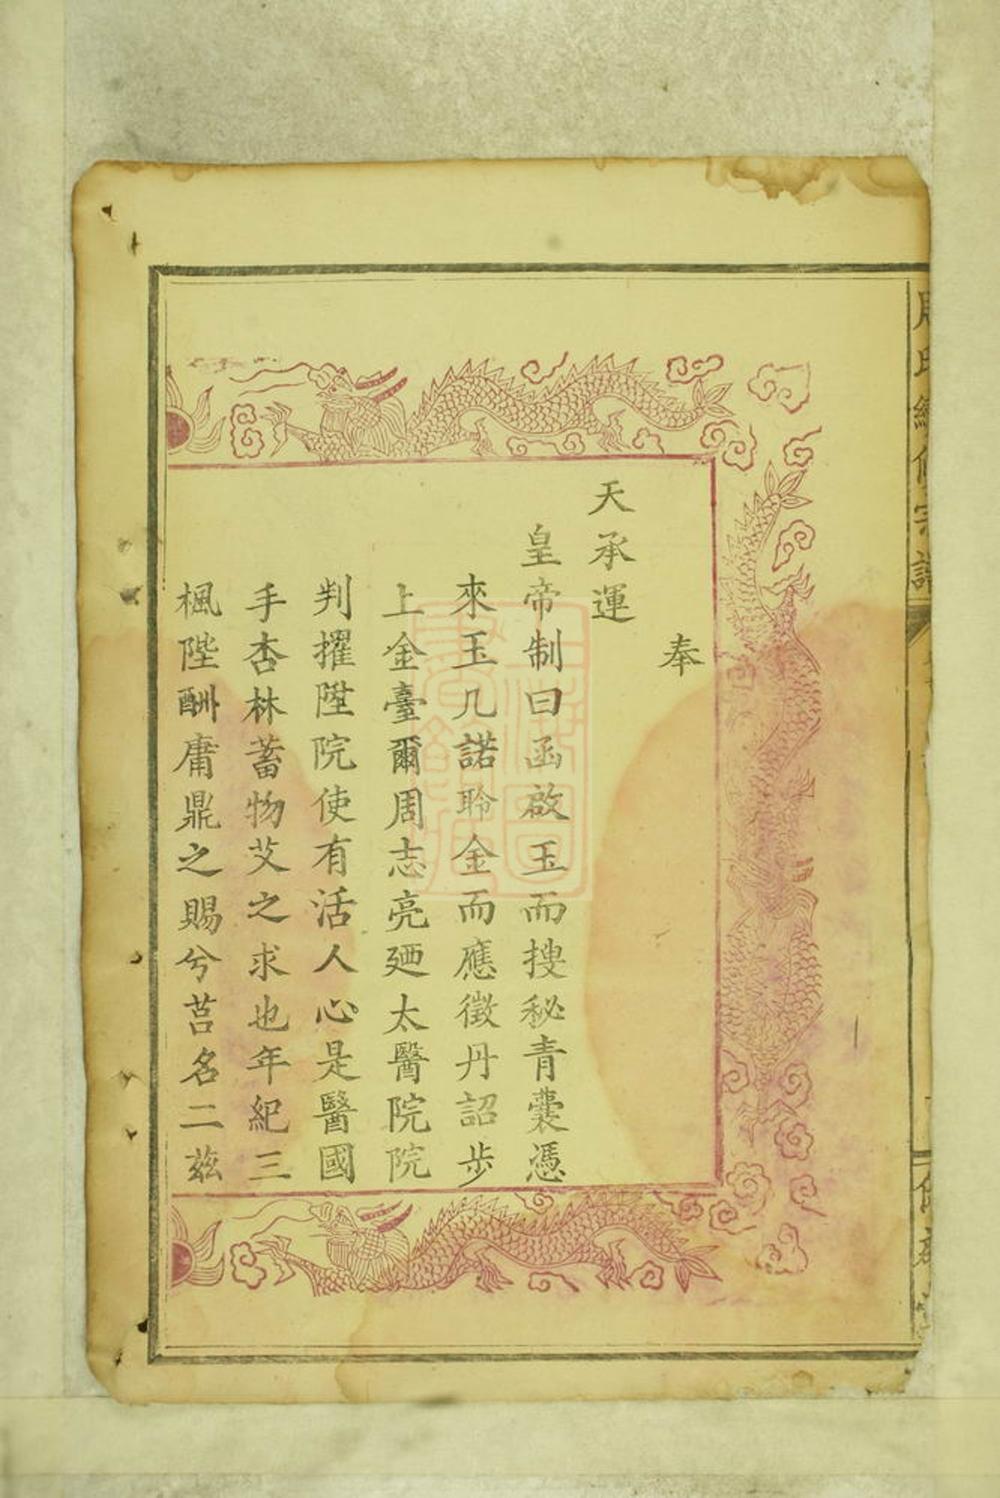 奉
天承運
皇帝制曰函啟玉而搜秘青囊憑
來玉几諾聆金而應徵丹詔步
上金臺爾周志亮廼太醫院院
判擢陞院使有活人心是醫國
手杏林蓄物艾之求也年紀三
楓陛酬庸鼎之賜兮莒名二茲
周氏續修宗譜